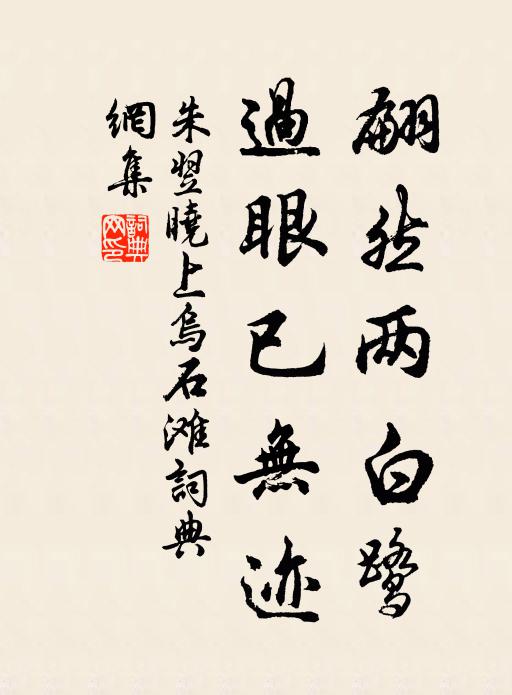 翩然两白鹭
過眼已無迹
朱翌曉上烏石滩詞典
網集
詞典網印